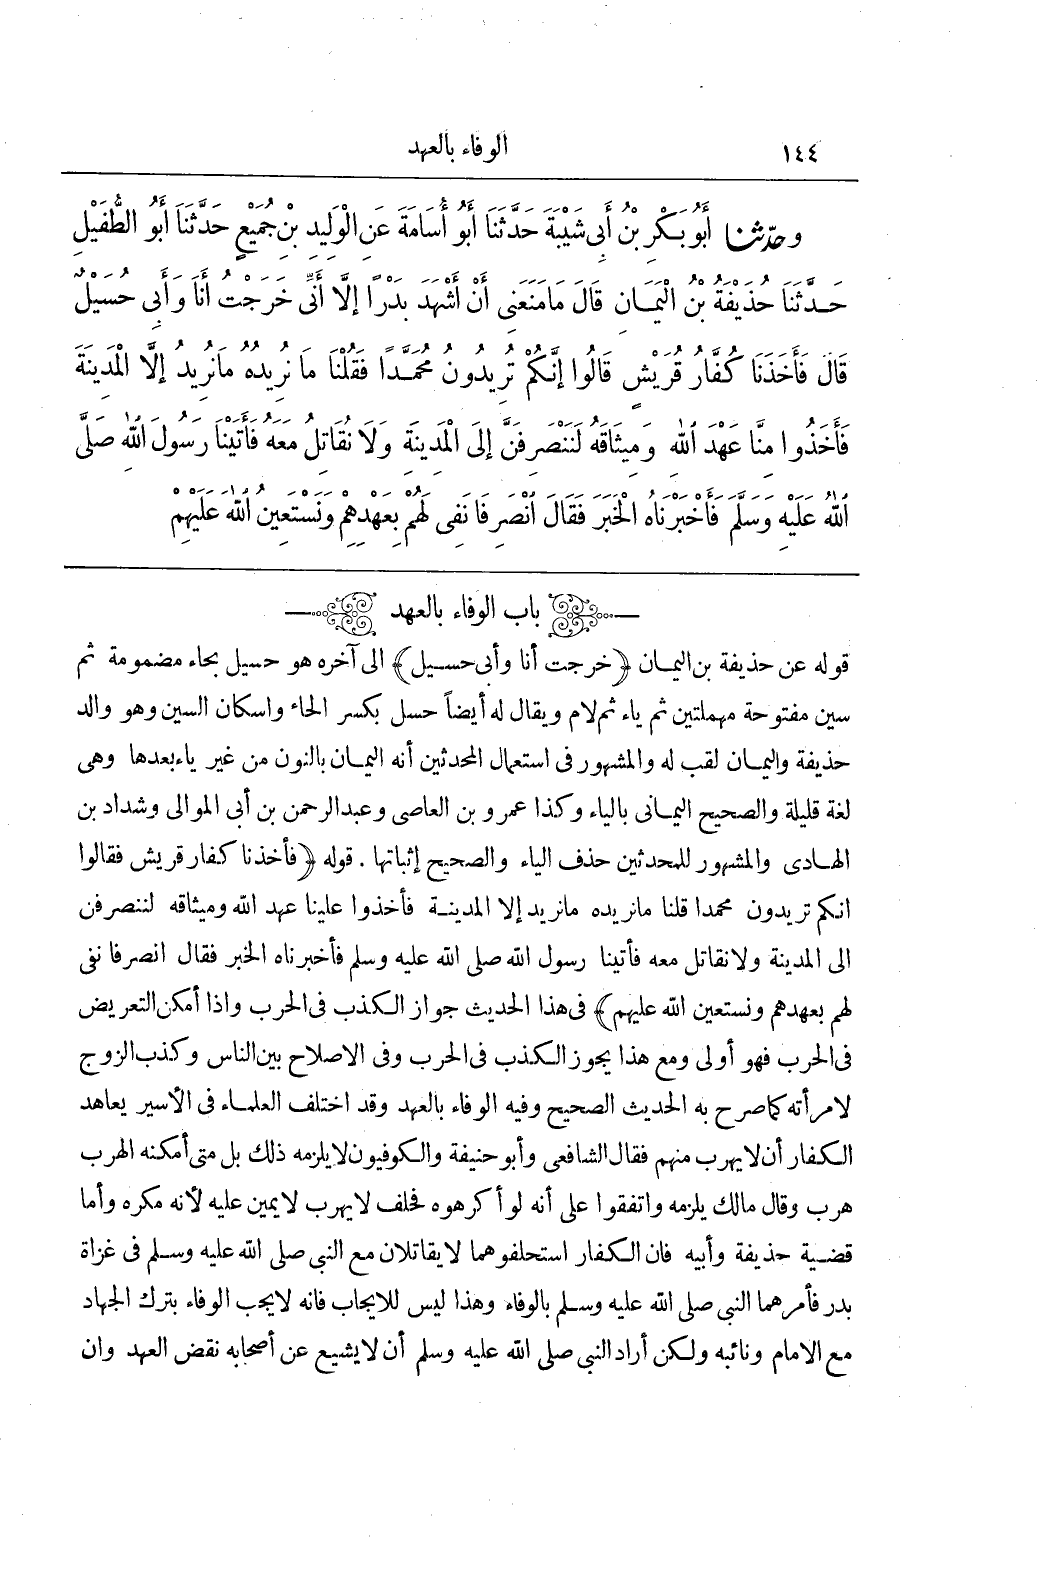 ١٤٤ الوفاء بالعهد
وحدثنا أَبُو بَكْرِ بْنُ أَبِى شَيْبَةَ حَدَّثَنَا أَبُو أُسَامَةَ عَنِ الْوَلِيدِ بْنِ جُمَيْعٍ حَدَّثَنَا أَبُو الطُّفَيْلِ
حَدَّثَنَا حُذَيْفَةُ بْنُ الْيَمَانِ قَالَ مَا مَنَعَنِى أَنْ أَشْهَدَ بَدْرًا إِلَّا أَنِّى خَرَجْتُ أَنَا وَأَبِى حُسَيْلٌ
قَالَ فَأَخَذَنَا كُفَّارُ قُرَيْشٍ قَالُوا إِنَّكُمْ تُرِيدُونَ مُحَمَّدًا فَقُلْنَا مَا نُرِيدُهُ مَا نُرِيدُ إِلَّا الْمَدِينَةَ
فَأَخَذُوا مِنَّا عَهْدَ اللّٰهِ وَمِيثَاقَهُ لَنَنْصَرِفَنَّ إِلَى الْمَدِينَةِ وَلَا نُقَاتِلُ مَعَهُ فَأَتَيْنَا رَسُولَ اللّٰهِ صَلَّى
اللّٰهُ عَلَيْهِ وَسَلَّمَ فَأَخْبَرْنَاهُ الْخَبَرَ فَقَالَ انْصَرِفَا نَفِى لَهُمْ بِعَهْدِهِمْ وَنَسْتَعِينُ اللّٰهَ عَلَيْهِمْ
باب الوفاء بالعهد
قوله عن حذيفة بن اليمان ﴿خرجت أنا وأبى حسيل﴾ الى آخره هو حسيل بحاء مضمومة ثم
سين مفتوحة مهملتين ثم ياء ثم لام ويقال له أيضاً حسل بكسر الحاء واسكان السين وهو والد
حذيفة واليمان لقب له والمشهور فى استعمال المحدثين أنه اليمان بالنون من غير ياء بعدها وهى
لغة قليلة والصحيح اليمانى بالياء وكذا عمرو بن العاصى وعبدالرحمن بن أبى الموالى وشداد بن
الهادى والمشهور للمحدثين حذف الياء والصحيح إثباتها . قوله ﴿فأخذنا كفار قريش فقالوا
انكم تريدون محمدا قلنا مانريده مانريد إلا المدينة فأخذوا علينا عهد الله وميثاقه لننصرفن
الى المدينة ولا نقاتل معه فأتينا رسول الله صلى الله عليه وسلم فأخبرناه الخبر فقال انصرفا نفى
لهم بعهدهم ونستعين الله عليهم﴾ فى هذا الحديث جواز الكذب فى الحرب واذا أمكن التعريض
فى الحرب فهو أولى ومع هذا يجوز الكذب فى الحرب وفى الاصلاح بين الناس وكذب الزوج
لامرأته كما صرح به الحديث الصحيح وفيه الوفاء بالعهد وقد اختلف العلماء فى الأسير يعاهد
الكفار أن لا يهرب منهم فقال الشافعى وأبو حنيفة والكوفيون لا يلزمه ذلك بل متى أمكنه الهرب
هرب وقال مالك يلزمه واتفقوا على أنه لو أكرهوه فحلف لا يهرب لا يمين عليه لأنه مكره وأما
قضية حذيفة وأبيه فان الكفار استحلفوهما لا يقاتلان مع النبى صلى الله عليه وسلم فى غزاة
بدر فأمرهما النبى صلى الله عليه وسلم بالوفاء وهذا ليس للايجاب فانه لا يجب الوفاء بترك الجهاد
مع الامام ونائبه ولكن أراد النبى صلى الله عليه وسلم أن لا يشيع عن أصحابه نقض العهد وان